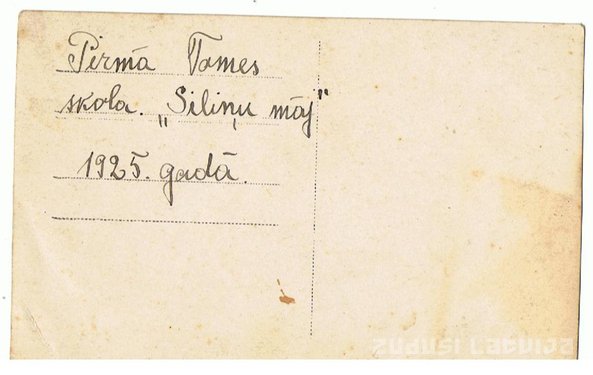 Pirmā Tomes
skola. „Siliņu māj"
1925. gadā.
zudusi Latvija